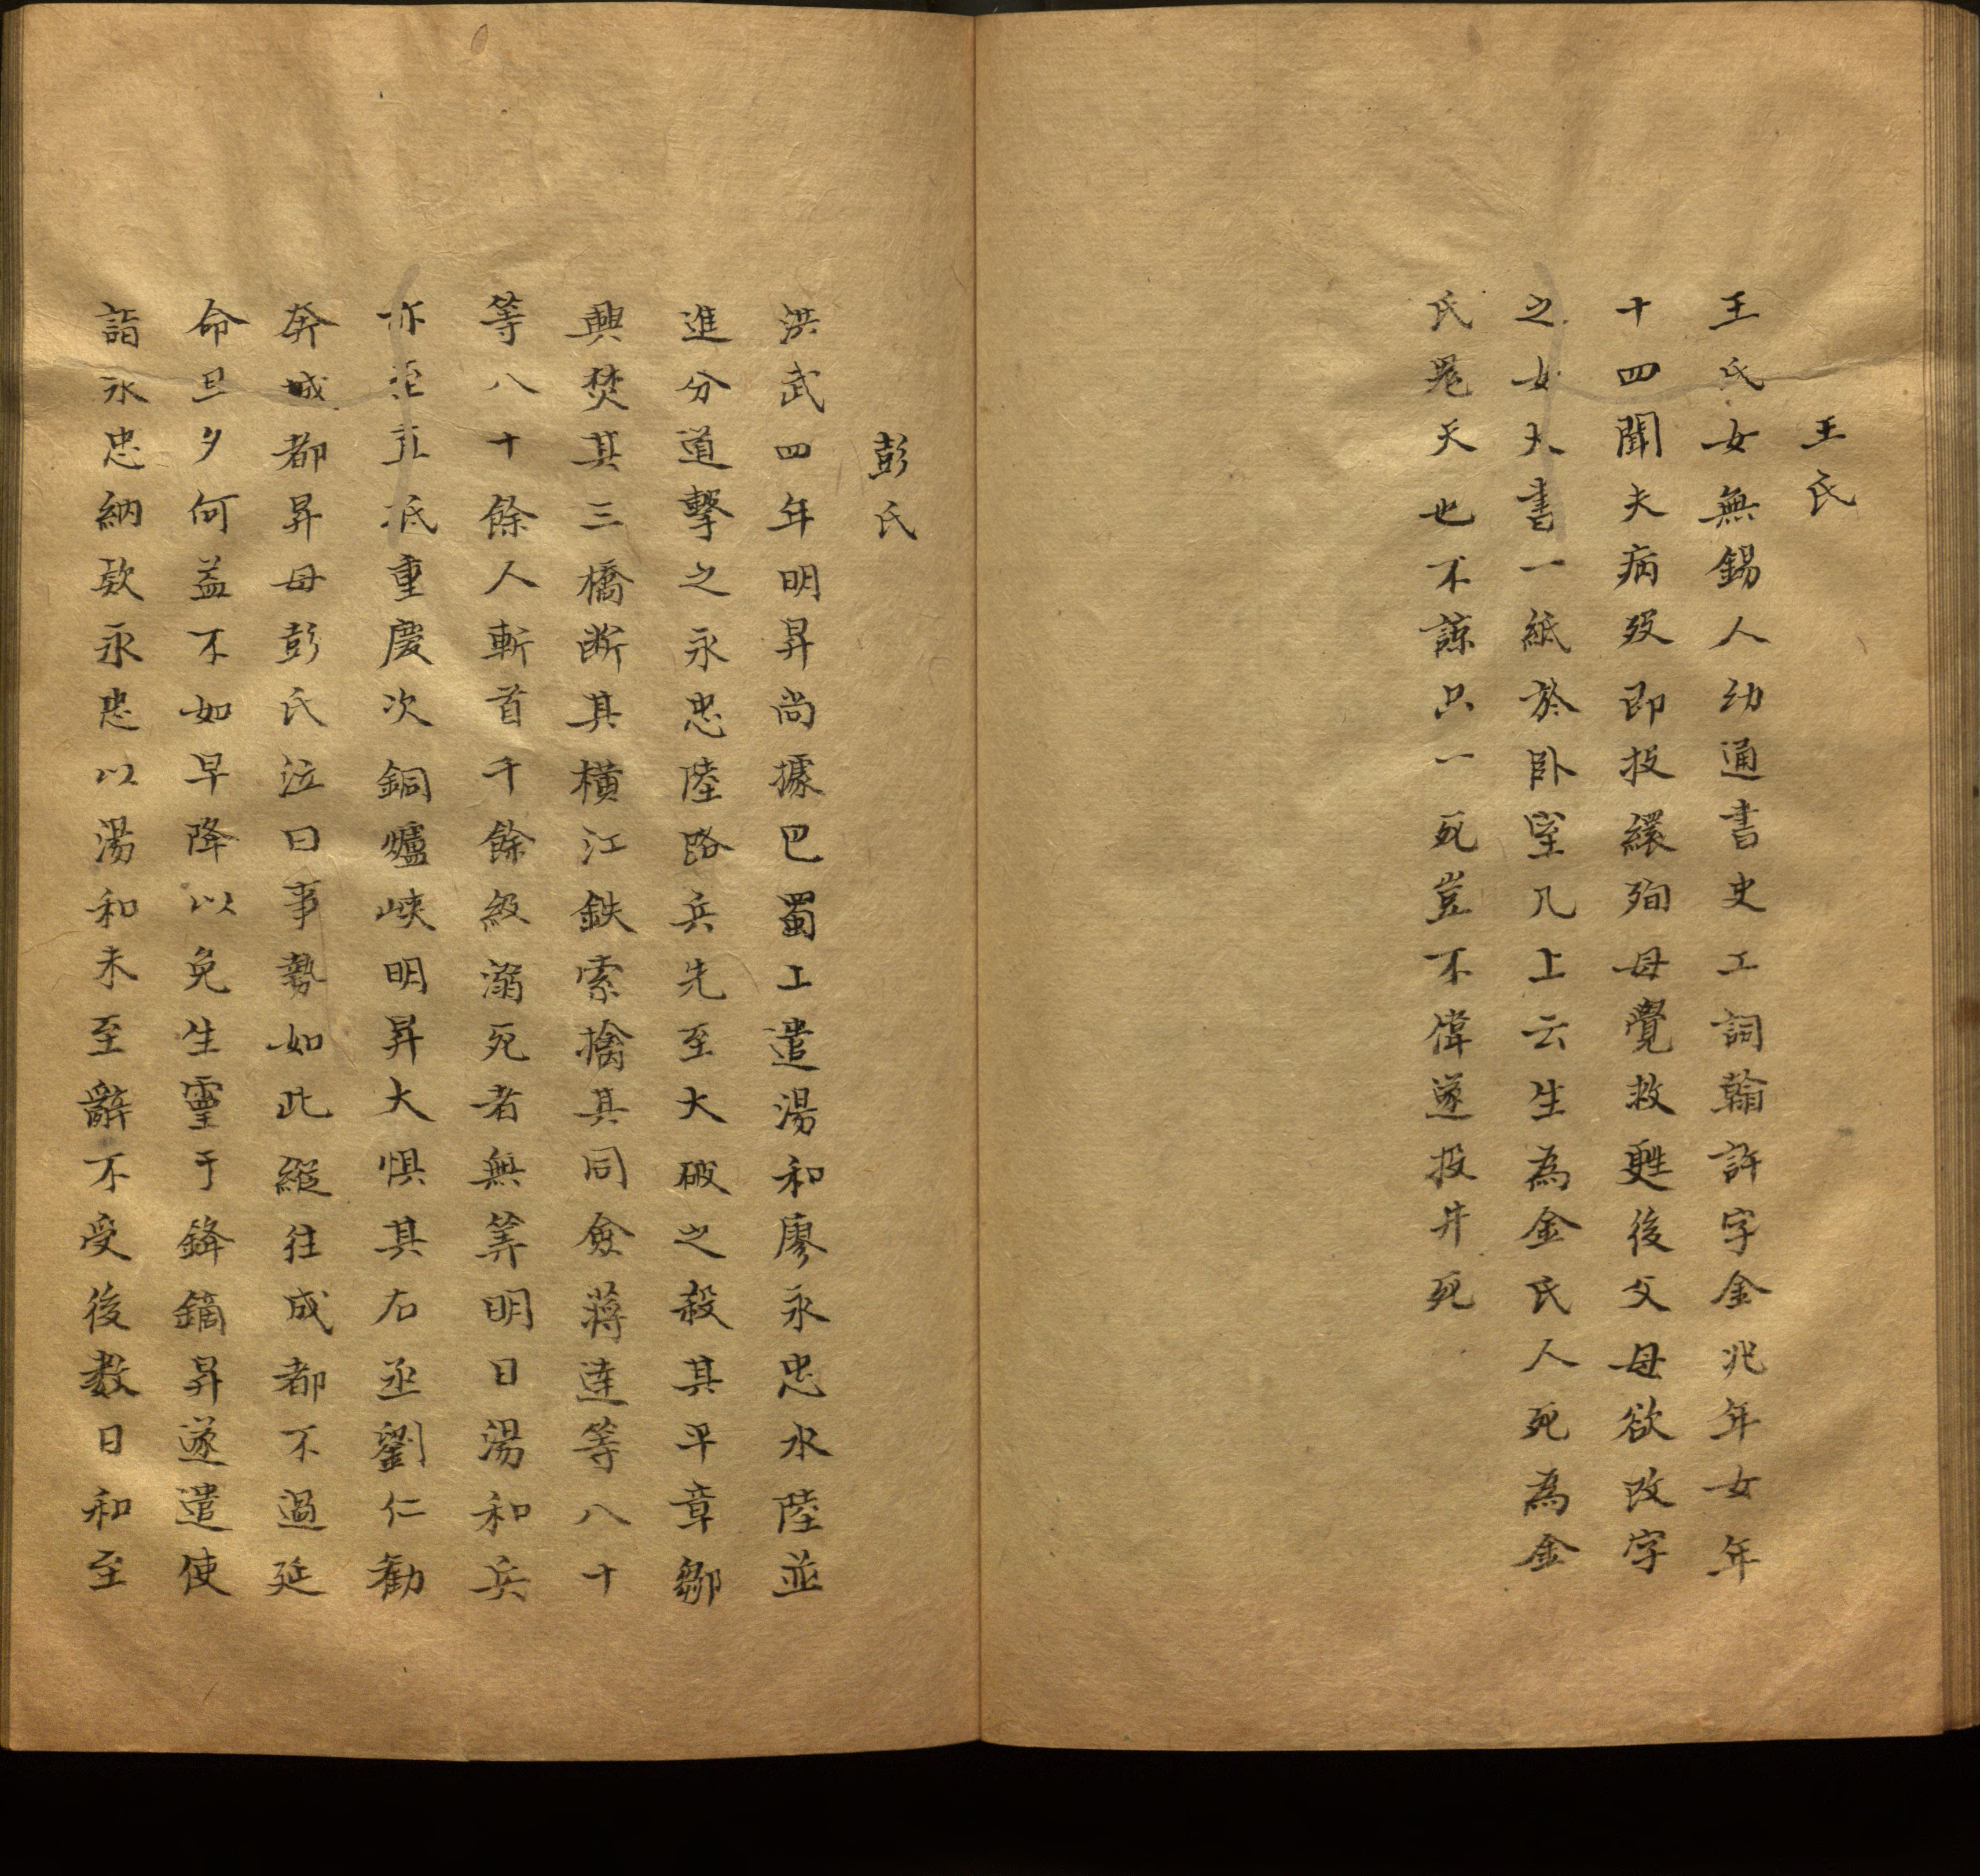 王氏
王氏女無錫人幼通書史工詞翰許字金兆年女年
十四聞夫病歿即投繯殉母覺救甦後父母欲改字
之女大書一紙於卧室几上云生為金氏人死為金
氏鬼天也不諒只一死豈不偉遂投井死
彭氏
洪武四年明昇尚據巴蜀上遣湯和廖永忠水陸並
進分道擊之永忠陸路兵先至大破之殺其平章鄒
興焚其三橋斷其橫江鉄索擒其同僉蔣達等八十
等八十餘人斬首千餘級溺死者無筭明日湯和兵
亦至直抵重慶次銅爐峽明昇大惧其右丞劉仁勸
奔成都昇母彭氏泣曰事勢如此縱往成都不過延
命旦夕何益不如早降以免生靈于鋒鏑昇遂遣使
詣永忠納欵永忠以湯和未至辭不受後数日和至